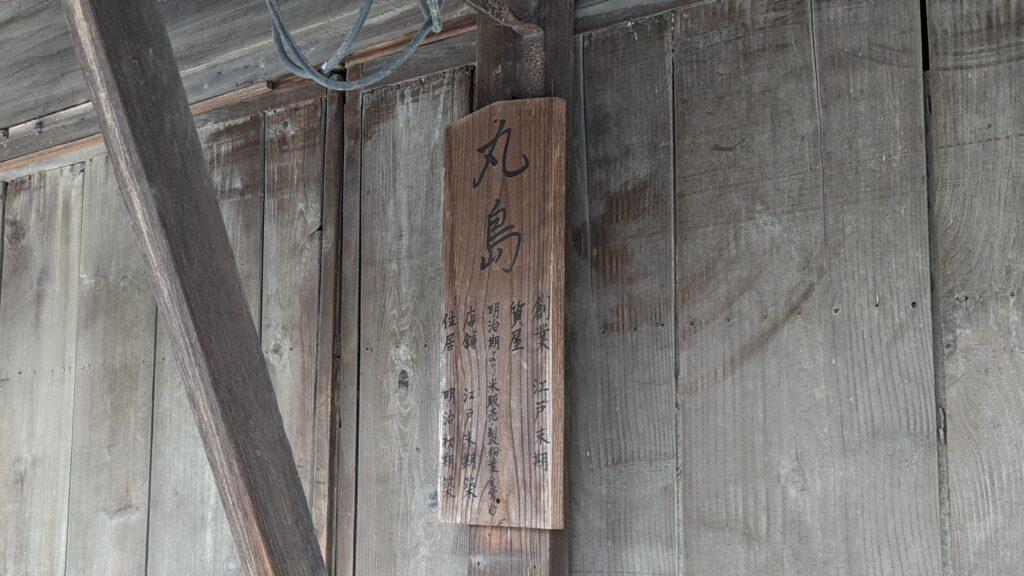 丸島
創業 江戸末期
質屋
明治期より米販売・製粉業を営む
店舗 江戸末期築
住居 明治初期築